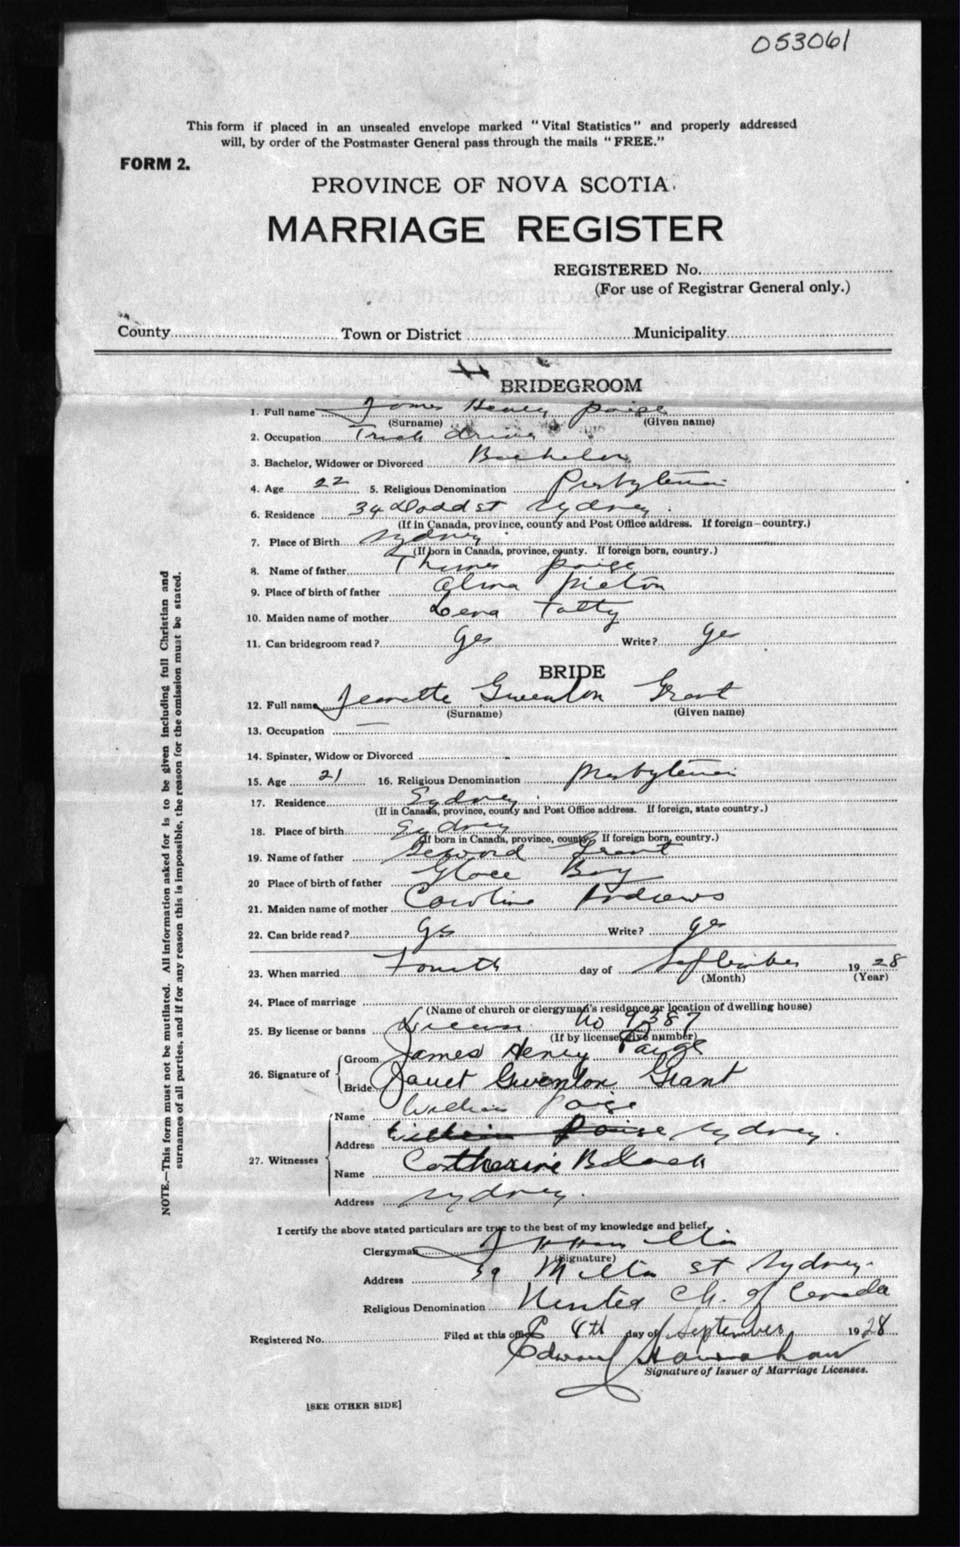 053061
This form if placed in an unsealed envelope marked "Vital Statistics" and properly addressed
will, by order of the Postmaster General pass through the mails "FREE."
FORM 2.
PROVINCE OF NOVA SCOTIA.
MARRIAGE REGISTER
REGISTERED No.
(For use of Registrar General only.)
County Town or District Municipality
BRIDEGROOM
1. Full name James Henry Paige
(Surname) (Given name)
2. Occupation Truck driver
3. Bachelor, Widower or Divorced Bachelor
4. Age 22 5. Religious Denomination Presbyterian
6. Residence 34 Dodd st Sydney
(If in Canada, province, county and Post Office address. If foreign—country.)
7. Place of Birth Sydney
(If born in Canada, province, county. If foreign born, country.)
8. Name of father Thomas Paige
9. Place of birth of father Pictou
10. Maiden name of mother Lena
11. Can bridegroom read? Yes Write? Yes
BRIDE
12. Full name Jeanette Gwenlon Grant
(Surname) (Given name)
13. Occupation —
14. Spinster, Widow or Divorced
15. Age 21 16. Religious Denomination Presbyterian
17. Residence Sydney
(If in Canada, province, county and Post Office address. If foreign, state country.)
18. Place of birth Sydney
(If born in Canada, province, county. If foreign born, country.)
19. Name of father Grant
20 Place of birth of father Glace Bay
21. Maiden name of mother Caroline Andrews
22. Can bride read? Yes Write? Yes
23. When married Fourth day of September 1928
(Month) (Year)
24. Place of marriage
(Name of church or clergyman's residence or location of dwelling house)
25. By license or banns License No 9387
(If by license, give number)
26. Signature of
Groom James Henry Paige
Bride Janet Gwenlon Grant
27. Witnesses
Name William Paige
Address William Paige Sydney.
Name Catherine Black
Address Sydney.
I certify the above stated particulars are true to the best of my knowledge and belief.
Clergyman Hamilton
(Signature)
Address 39 st Sydney.
Religious Denomination United Ch. of Canada
Registered No. Filed at this office 8th day of September 1928
Edward
Signature of Issuer of Marriage Licenses.
[SEE OTHER SIDE]
NOTE.—This form must not be mutilated. All information asked for is to be given including full Christian and
surnames of all parties, and if for any reason this is impossible, the reason for the omission must be stated.